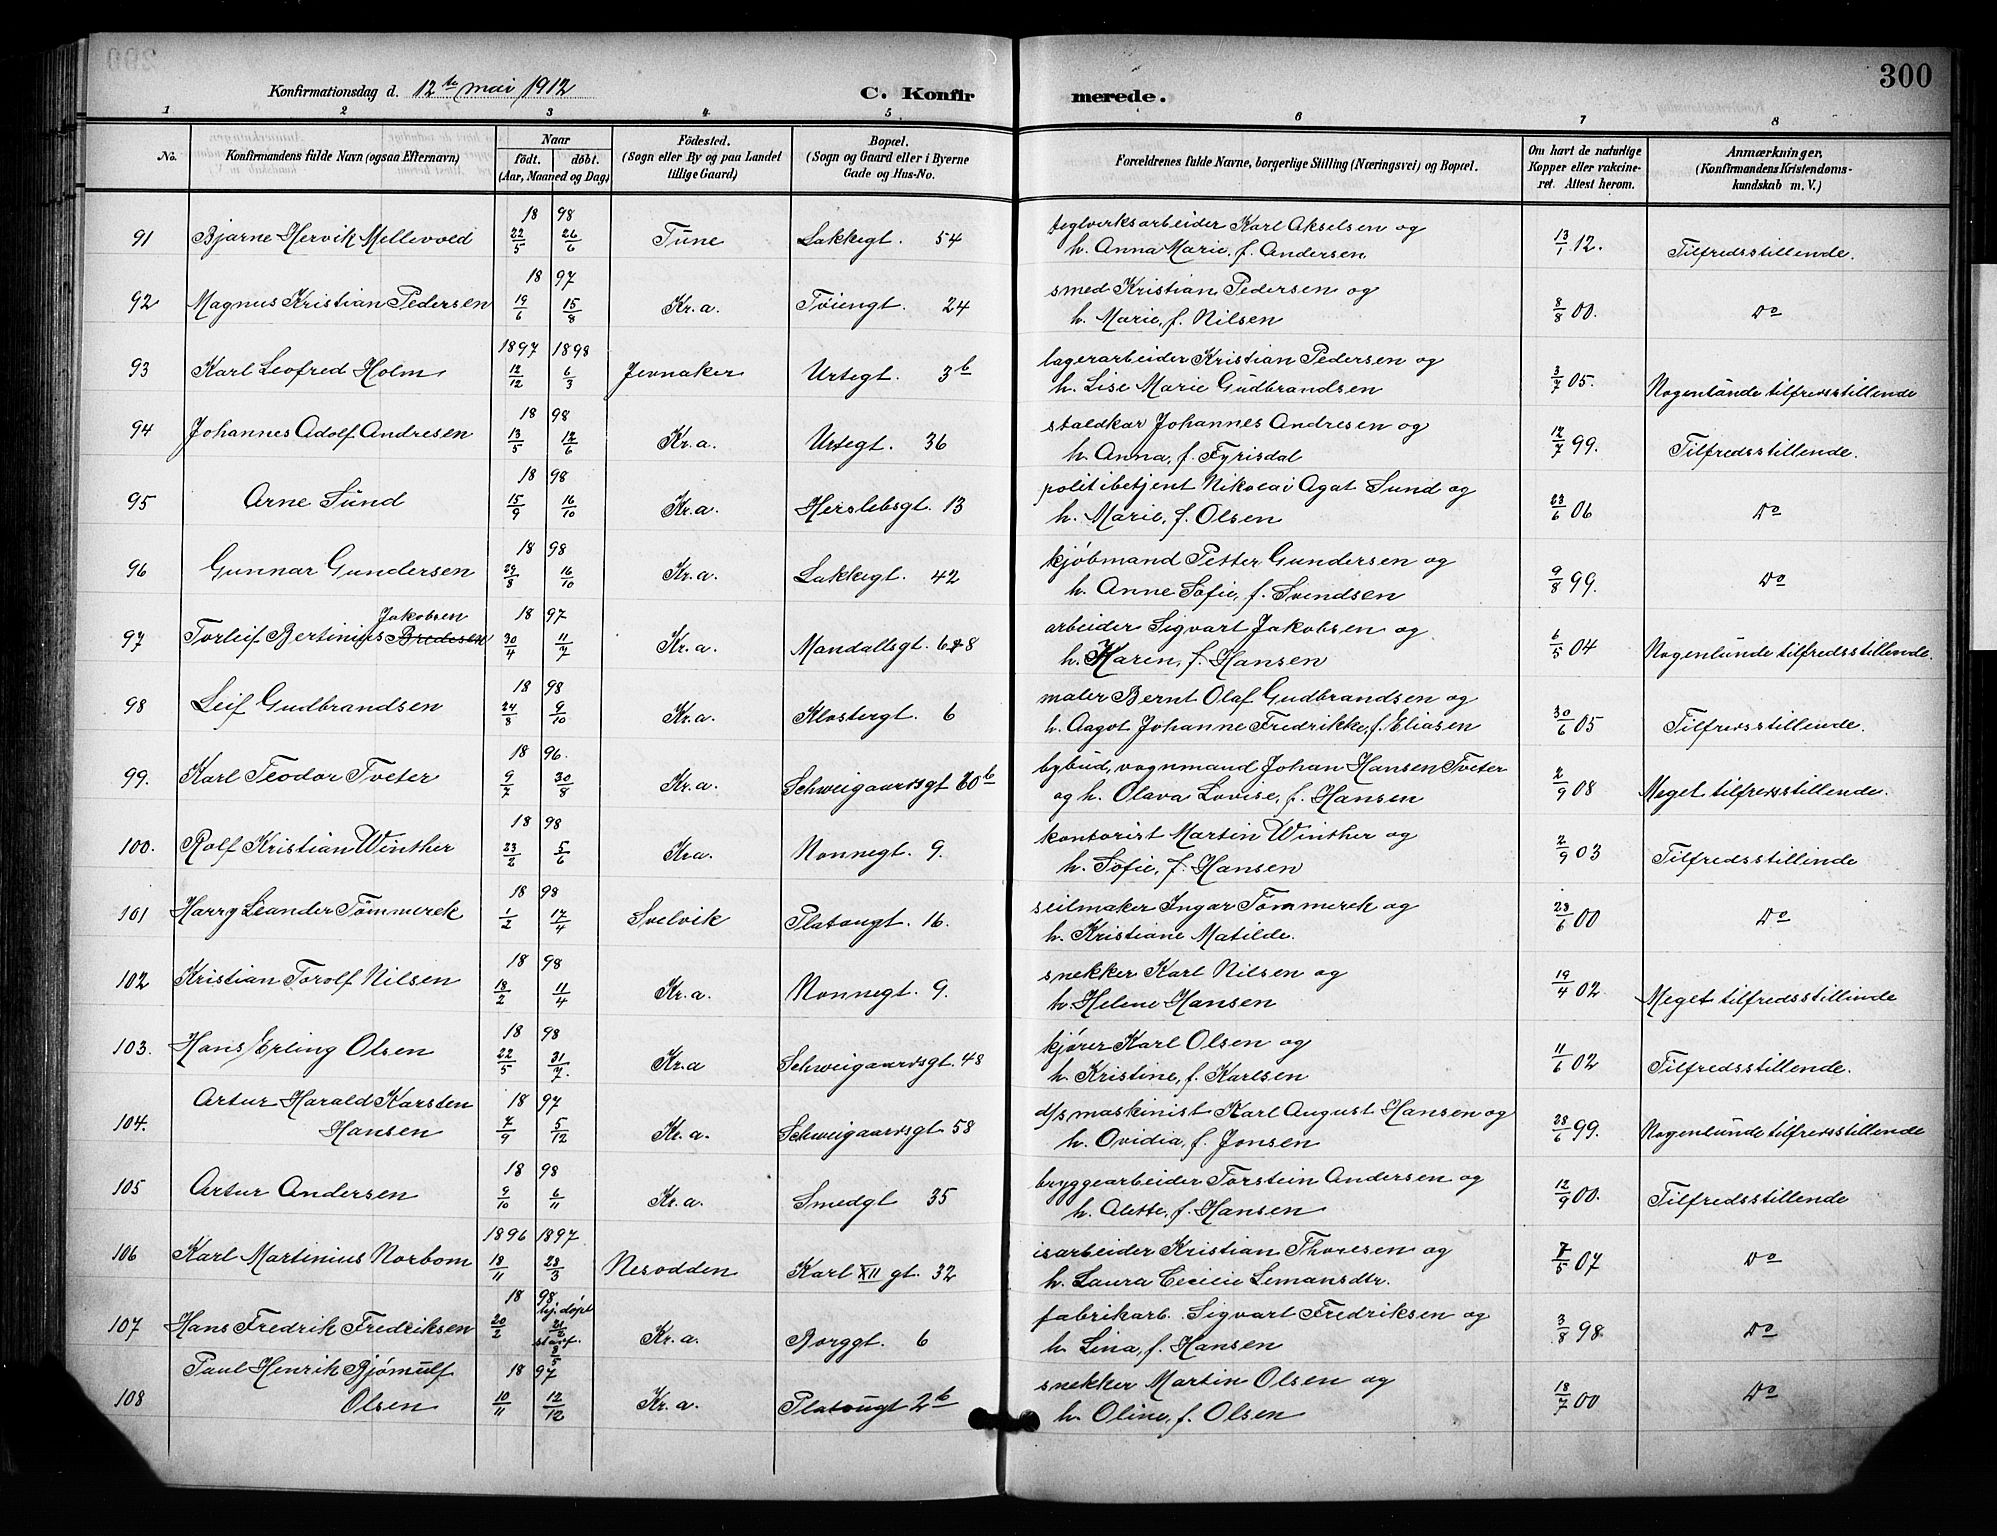 300
Konfirmationsdag d. 12te mai 1912
C. Konfirmerede.
1 2 3 4 5 6 7 8
No. Konfirmandens fulde Navn (ogsaa Efternavn) Naar født. døbt. (Aar, Maaned og Dag) Födested. (Sogn eller By og paa Landet tillige Gaard) Bopæl. (Sogn og Gaard eller i Byerne Gade og Hus-No. Forældrenes fulde Navne, borgerlige Stilling (Næringsvei) og Bopæl. Om havt de naturlige Kopper eller vakcineret. Attest herom. Anmærkninger. (Konfirmandens Kristendomskundskab m. V.)
91 Bjarne Hervik Mellevold 18 98 22/5 26/6 Tune Lakkegt. 54 teglverksarbeider Karl Akselsen og
h. Anna Marie, f. Andersen 13/1 12. Tilfredsstillende.
92 Magnus Kristian Pedersen 18 97 19/6 15/8 Kr.a. Tøiengt. 24 smed Kristian Pedersen og
h. Marie, f. Nilsen 8/8 00. Do
93 Karl Leofred Holm 1897 1898 12/12 6/3 Jevnaker Urtegt. 3b lagerarbeider Kristian Pedersen og
h. Lise Marie Gudbrandsen 3/7 05. Nogenlunde tilfredsstillende
94 Johannes Adolf Andresen 18 98 13/5 12/6 Kr.a. Urtegt. 36 staldkar Johannes Andresen og
h. Anna, f. Fyrisdal 12/7 99. Tilfredsstillende.
95 Arne Sund 18 98 15/9 16/10 Kr.a. Herslebsgt. 13 politibetjent Nikolai Agat Sund og
h. Marie, f. Olsen 23/6 06 Do
96 Gunnar Gundersen 18 98 29/8 16/10 Kr.a. Lakkegt. 42 kjøbmand Petter Gundersen og
h. Anne Sofie, f. Svendsen 9/8 99. Do
97 Torleif Bertinius Bredesen Jakobsen 18 97 30/4 11/7 Kr.a. Mandallsgt. 6+8 arbeider Sigvart Jakobsen og
h. Karen, f. Hansen 6/5 04 Nogenlunde tilfredsstillende.
98 Leif Gudbrandsen 18 98 24/8 9/10 Kr.a. Klostergt. 6 maler Bernt Olaf Gudbrandsen og
h. Aagot Johanne Fredrikke, f. Eliasen 30/6 05 Tilfredsstillende.
99. Karl Teodor Tveter 18 96. 9/7 30/8 Kr.a. Schweigaardsgt 80b bybud, vognmand Johan Hansen Tveter
og h. Olava Lovise, f. Hansen 2/9 08 Meget tilfredsstillende.
100. Rolf Kristian Winther 18 98 23/2 5/6 Kr.a. Nonnegt. 9. kontorist Martin Winther og
h. Sofie, f. Hansen 2/9 03 Tilfredsstillende
101 Harry Leander Tømmerek 18 98 1/2 17/4 Svelvik Platougt. 16. seilmaker Ingar Tømmerek og
h. Kristiane Matilde. 23/6 00 Do
102 Kristian Torolf Nilsen 18 98 18/2 11/4 Kr.a. Nonnegt. 9. snekker Karl Nilsen og
h. Helene Hansen 19/4 02. Meget tilfredsstillende
103. Hans Erling Olsen 18 98 22/5 31/7. Kr.a Schweigaardsgt. 48 kjører Karl Olsen og
h. Kristine, f. Karlsen 11/6 02 Tilfredsstillende.
104. Artur Harald Karsten Hansen 18 97 7/9 5/12 Kr.a. Schweigaardsgt. 58 d/s maskinist Karl August Hansen og
h. Ovidia, f. Jonsen 28/6 99. Nogenlunde tilfredsstillende
105 Artur Andersen 18 98 9/10 6/11 Kr.a. Smedgt 35 bryggearbeider Torstein Andersen og
h. Alette, f. Hansen 12/9 00. Tilfredsstillende
106 Karl Martinius Norbom 1896 1897 18/11 28/3 Nesodden Karl XII gt. 32 isarbeider Kristian Thoresen og
h. Laura Cecilie Lemansdtr. 7/5 07 Do
107 Hans Fredrik Fredriksen 18 98 20/2 hj. døpt 21/2 stadf. 8/5 Kr.a. Borggt. 6 fabrikarb. Sigvart Fredriksen og
h. Lina, f. Hansen 3/8 98 Do
108 Paul Henrik Bjørnulf Olsen 18 97 10/11 12/12 Kr.a. Platougt 2b snekker Martin Olsen og
h. Oline, f. Olsen 18/7 00 Do